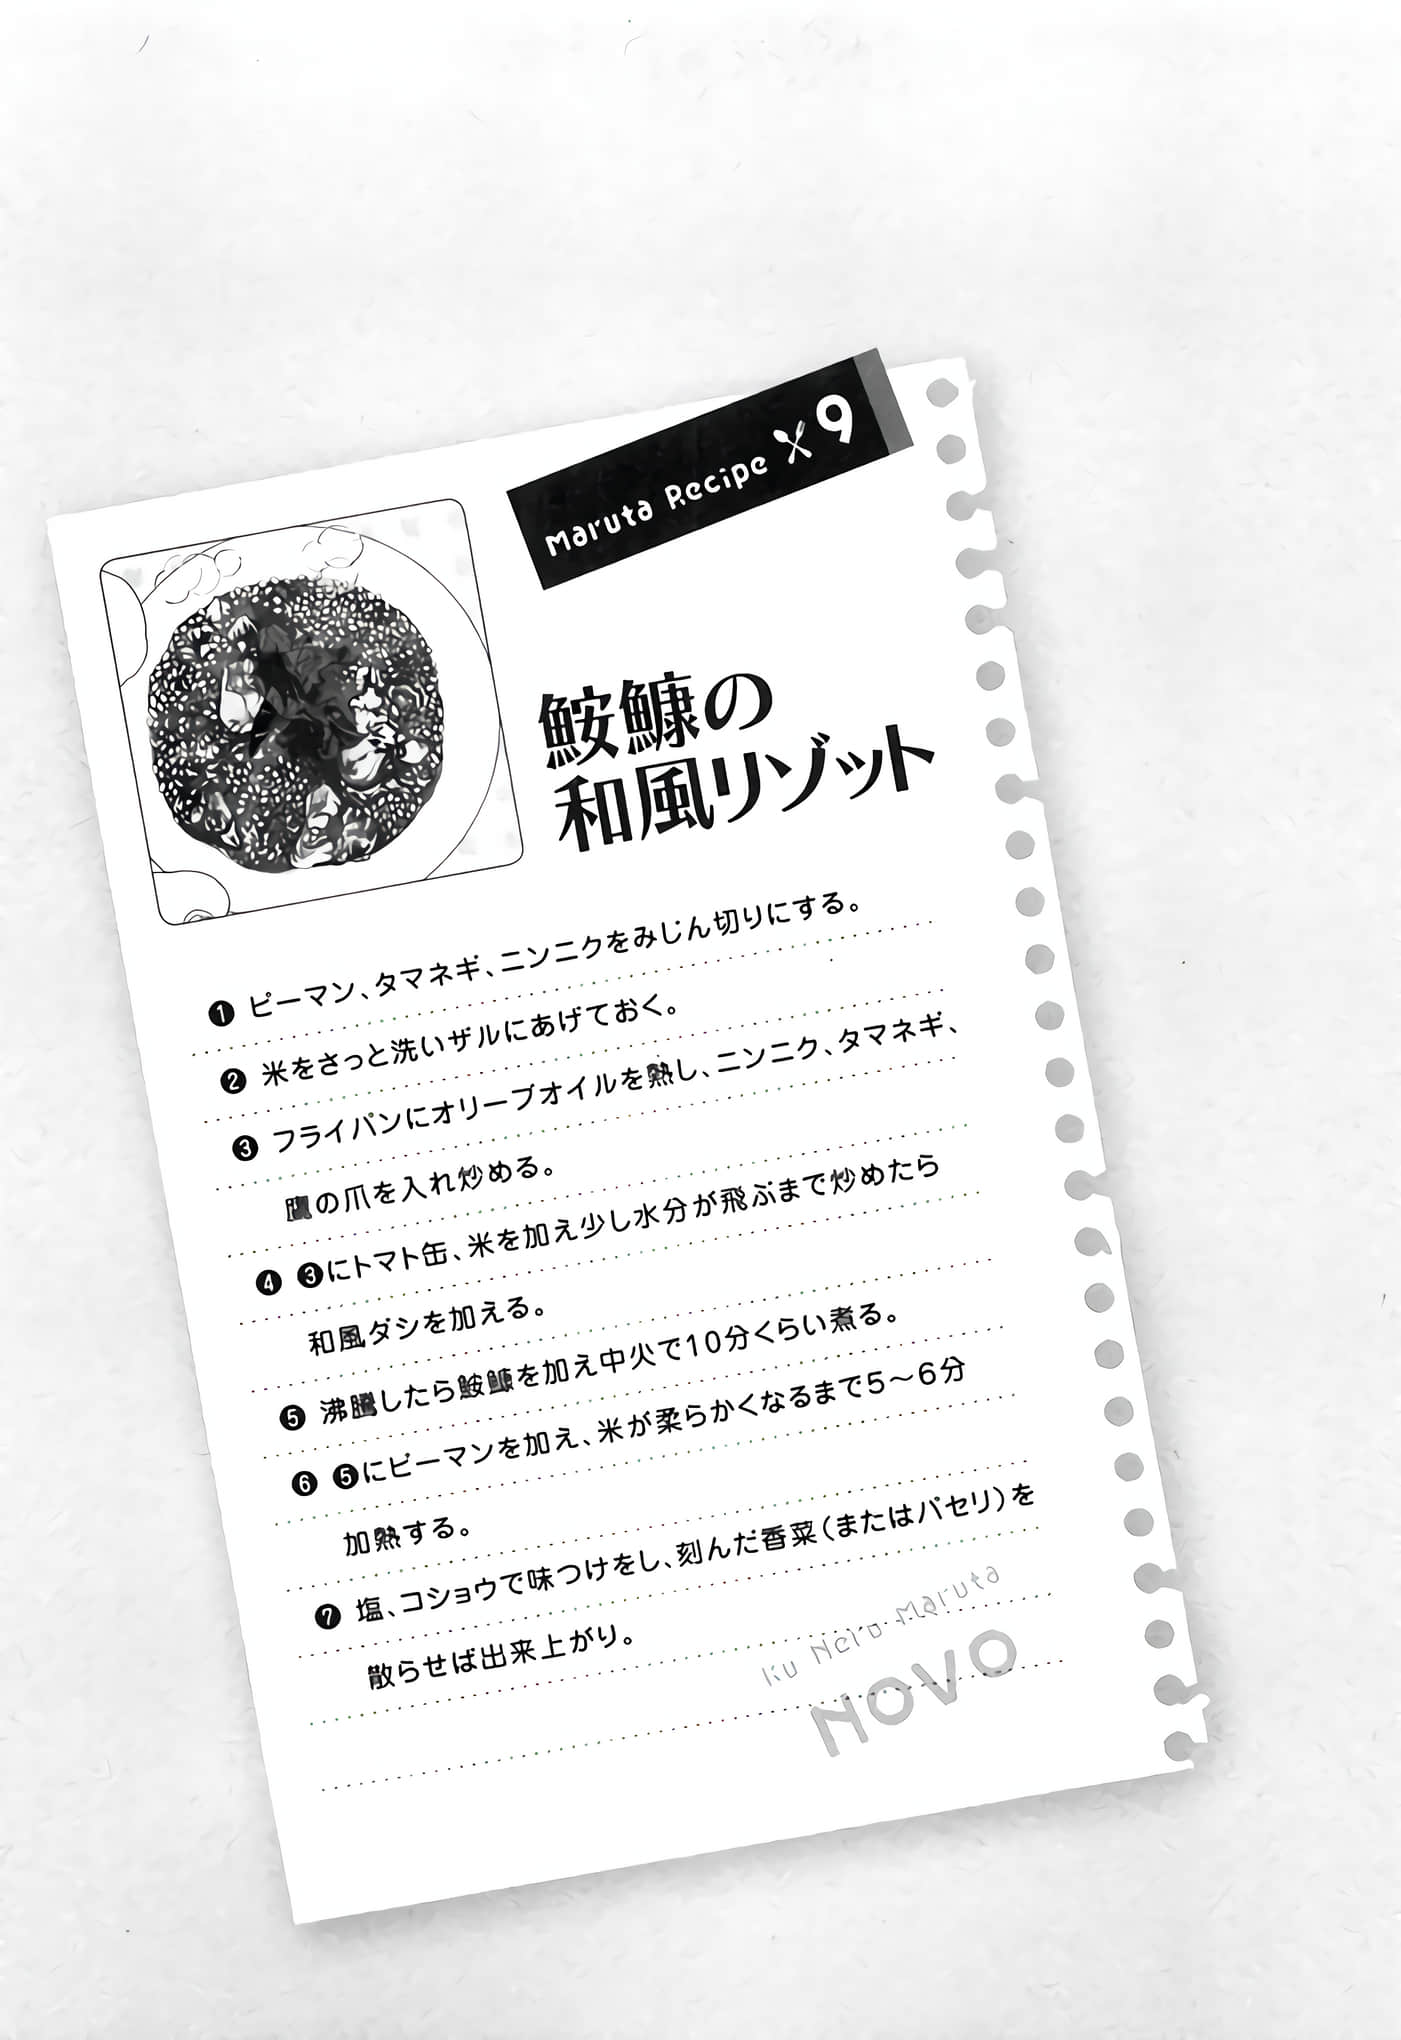 Maruta Recipe 9
鮟鱇の
和風リゾット
❶ ピーマン、タマネギ、ニンニクをみじん切りにする。
❷ 米をさっと洗いザルにあげておく。
❸ フライパンにオリーブオイルを熱し、ニンニク、タマネギ、
鷹の爪を入れ炒める。
❹ ❸にトマト缶、米を加え少し水分が飛ぶまで炒めたら
和風ダシを加える。
❺ 沸騰したら鮟鱇を加え中火で10分くらい煮る。
❻ ❺にピーマンを加え、米が柔らかくなるまで5〜6分
加熱する。
❼ 塩、コショウで味つけをし、刻んだ香菜(またはパセリ)を
散らせば出来上がり。
Ku Nel Maruta
NOVO